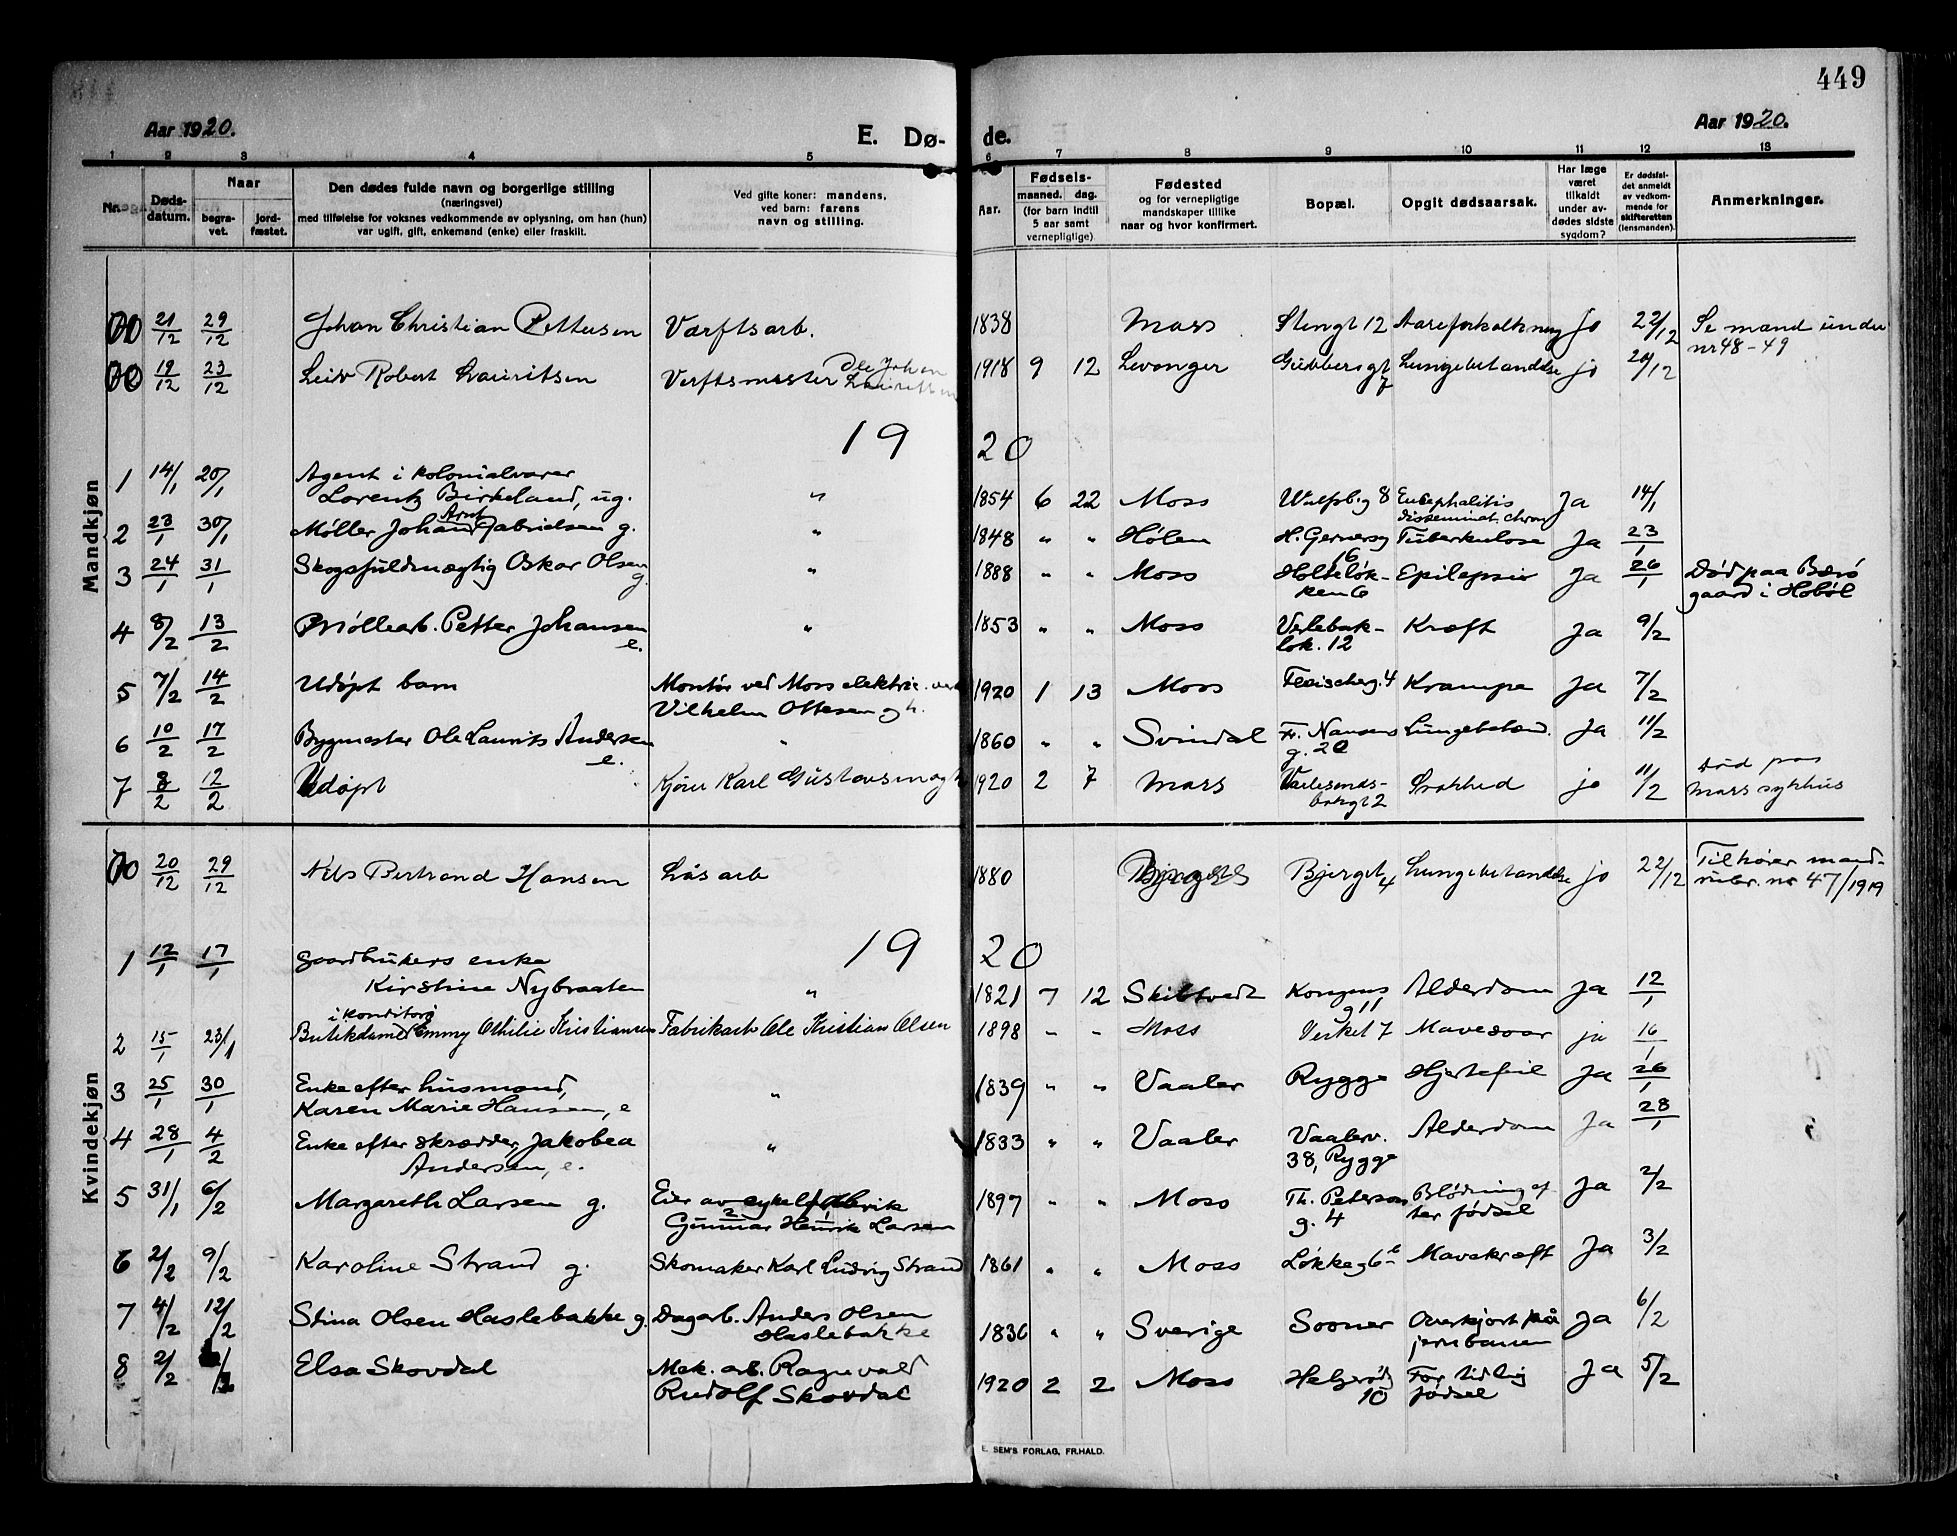 449
Aar 1920.
E. Dø-
de.
Aar 1920.
1 2 3 4 5 6 7 8 9 10 11 12 13
Nr.
Døds-
datum.
Naar
begra-
vet.
jord-
fæstet.
Den dødes fulde navn og borgerlige stilling
(næringsvei)
med tilføielse for voksnes vedkommende av oplysning, om han (hun)
var ugift, gift, enkemand (enke) eller fraskilt.
Ved gifte koner: mandens,
ved barn: farens
navn og stilling.
Aar.
Fødsels-
maaned. dag.
(for barn indtil
5 aar samt
vernepligtige)
Fødested
og for vernepligtige
mandskaper tillike
naar og hvor konfirmert.
Bopæl.
Opgit dødsaarsak.
Har læge
været
tilkaldt
under av-
dødes sidste
sygdom?
Er dødsfal-
det anmeldt
av vedkom-
mende for
skifteretten
(lensmanden).
Anmerkninger.
Mandkjøn
21/12 29/12 Johan Christian Pettersen Værftsarb. 1838 Moss Stengt 12 Aareforkalkning jo 22/12 Se mand under
nr 48-49
19/12 23/12 Leiv Robert Lauritsen Verftsmester Ole Johan
Lauritsen 1918 9 12 Levanger Gudbergt
7 Lungebetændelse jo 20/12
1920
1 14/1 20/1 Agent i kolonialvarer
Lorentz Birkeland, ug. " 1854 6 22 Moss Wulfsbg 8 Encephalitis
disseminat. chron Ja 14/1
2 23/1 30/1 Møller Johan Arnt Gabrielsen g. " 1848 " " Hølen H. Gernersg
16 Tuberkulose Ja 23/1
3 24/1 31/1 Skogsfuldmægtig Oskar Olsen
g. " 1888 " " Moss Holteløk-
ken 6 Epilepsie Ja 26/1 Død paa Bærø
gaard i Hobøl
4 8/2 13/2 Møllearb. Petter Johansen
e. " 1853 " " Moss Verlebak-
løk. 12 Kræft Ja 9/2
5 7/2 14/2 Udøpt barn Montør ved Moss elektric. verk
Vilhelm Ottesen g h. 1920 1 13 Moss Fleischerg. 4 Krampe Ja 7/2
6 10/2 17/2 Bygmester Ole Laurits Andersen
e. " 1860 " " Svindal Fr. Nansens
g. 20 Lungebetænd. Ja 11/2
7 8/2 12/2 Udøpt Kjører Karl Gustavsen og h 1920 2 7 Moss
bakgt 2 Svakhed jo 11/2 Død paa
Moss sykhus
Kvindekjøn
20/12 29/12 Nils Bertrand Hansen Løsarb 1880 Bjergt
4 Lungebetændelse jo 22/12 Tilhører mand-
rubr. nr 47/1919
1920
1 12/1 17/1 Gaardbrukers enke
Kirstine Nybraaten " 1821 7 12 Skibtvedt Kongens
g 11 Alderdom Ja 12/1
2 15/1 23/1 Butikdame i Konditori Emmy Othilie Kristiansen Fabrikarb Ole Kristian Olsen 1898 " " Moss Verket 7 Mavesaar ja 16/1
3 25/1 30/1 Enke efter husmand,
Karen Marie Hansen, e " 1839 " " Vaaler Rygge Hjertefeil Ja 26/1
4 28/1 4/2 Enke efter skrædder, Jakobea
Andersen, e. " 1833 " " Vaaler Vaalerv.
38, Rygge Alderdom Ja 28/1
5 31/1 6/2 Margareth Larsen g. Eier av cykelfabrik
Gunnar Henrik Larsen
2 1 1897 " " Moss Th. Peterson
g. 4 Blødning ef
ter fødsel Ja 2/2
6 2/2 9/2 Karoline Strand g. Skomaker Karl Ludvig Strand 1861 " " Moss Løkkeg 6 Mavekræft Ja 3/2
7 4/2 12/2 Stina Olsen Haslebakke g. Dagarb. Anders Olsen
Haslebakke 1836 " " Sverige Sooner Overkjørt på
jernbanen Ja 6/2
8 2/2 Elsa Skovdal Mek. arb. Ragnvald
Rudolf Skovdal 1920 2 2 Moss Helgerødg
10 For tidlig
fødsel Ja 5/2
E. SEM'S FORLAG, FR.HALD.